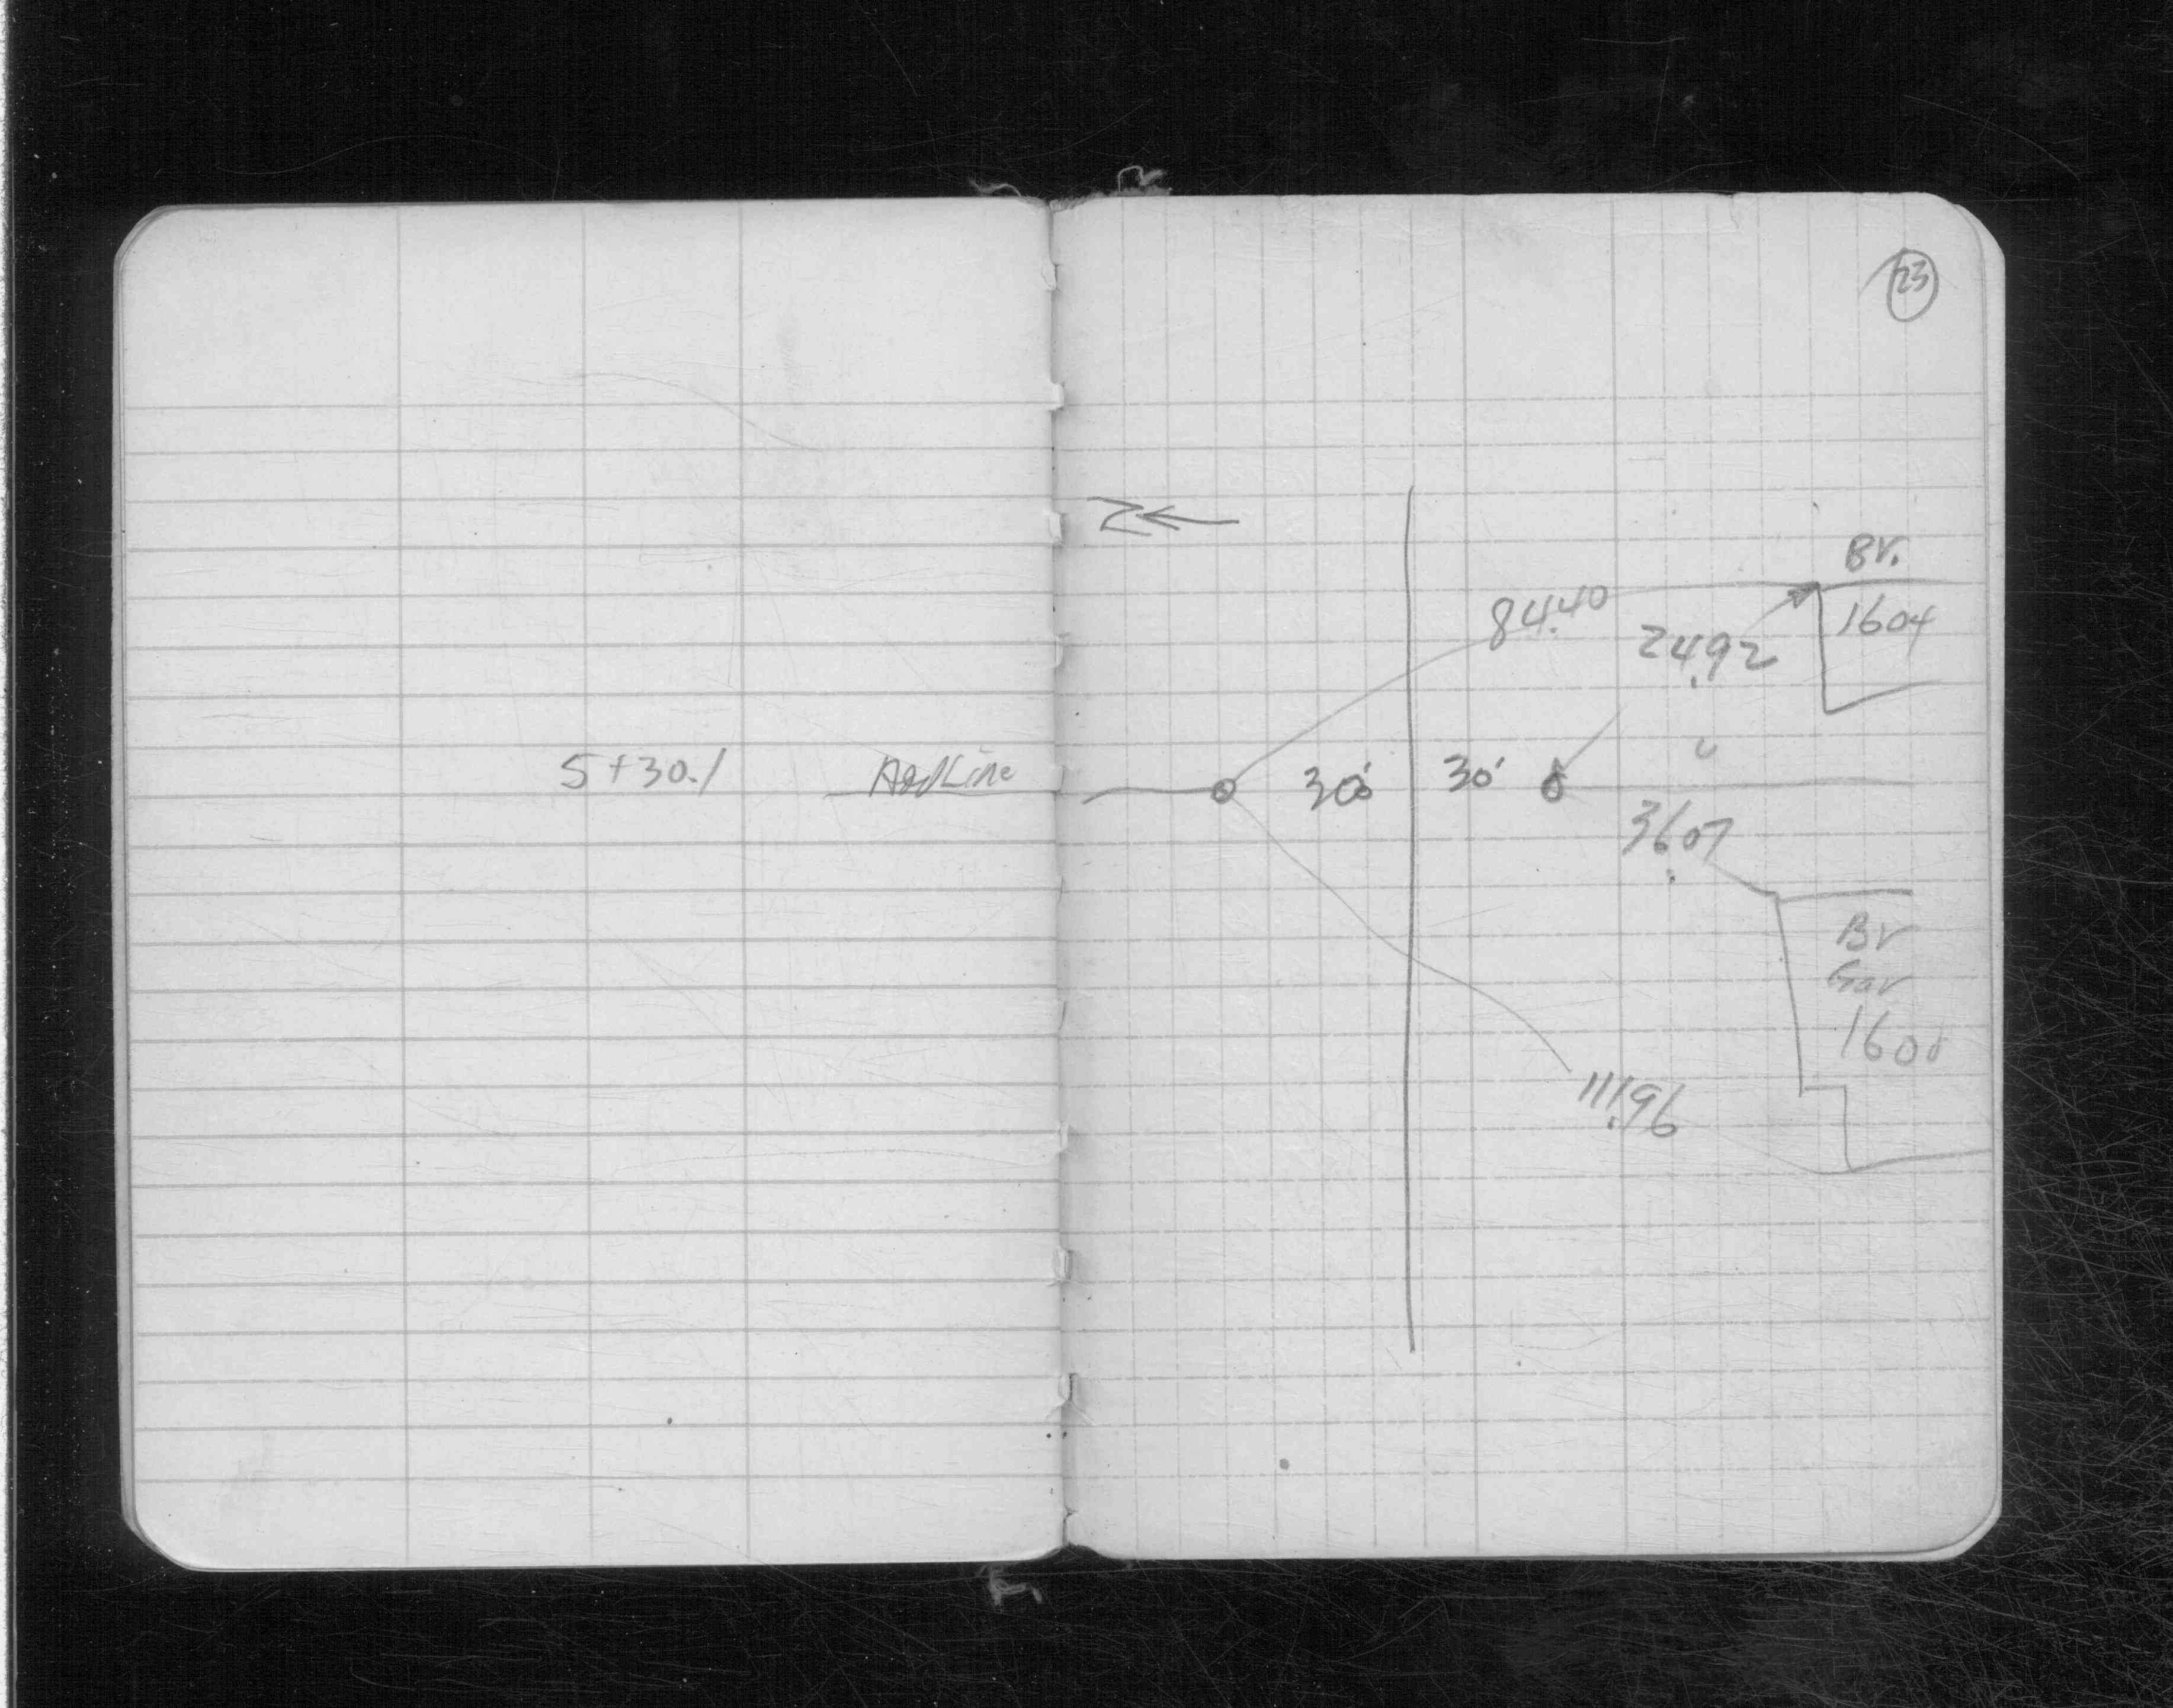 23
N
Br.
84.40
1604
24.92
5+30.1
30'
30'
36.07
Br
Gar
1600
111.96